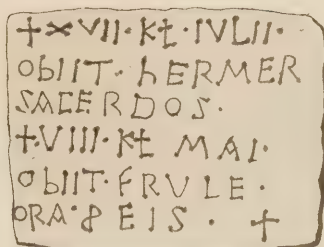 +XVII·KŁ·IVLII·
ObIIT·hERMER
SACERDOS·
+VIII·KŁ MAI·
ObIIT·ERVLE·
ORA·8 EIS· +